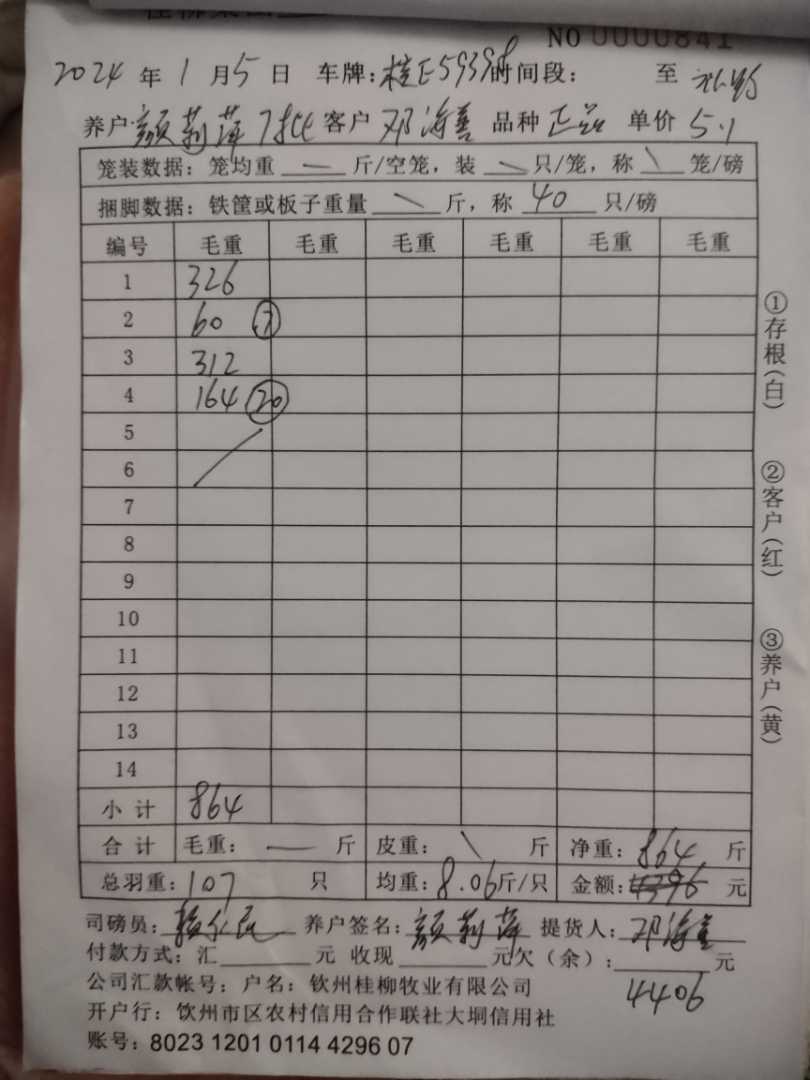 NO 0000841
2024 年 1 月 5 日 车牌: 桂E59398 时间段: 至
养户 颜莉萍 7批 客户 邓海善 品种 单价 5.1
笼装数据: 笼均重 — 斤/空笼, 装 \ 只/笼, 称 \ 笼/磅
捆脚数据: 铁筐或板子重量 \ 斤, 称 40 只/磅
编号 毛重 毛重 毛重 毛重 毛重 毛重
1 326
2 60 ⑦
3 312
4 164 ⑳
5
6
7
8
9
10
11
12
13
14
小计 864
合计 毛重: — 斤 皮重: \ 斤 净重: 864 斤
总羽重: 107 只 均重: 8.06 斤/只 金额: 4396 元
司磅员: 养户签名: 颜莉萍 提货人: 邓海善
付款方式: 汇 元 收现 元欠 (余): 元
4406
公司汇款帐号: 户名: 钦州桂柳牧业有限公司
开户行: 钦州市区农村信用合作联社大垌信用社
账号: 8023 1201 0114 4296 07
①存根(白)
②客户(红)
③养户(黄)